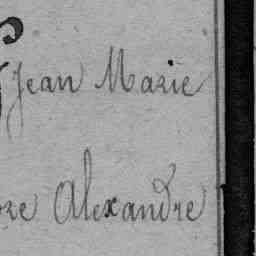 Jean Marie
re Alexandre